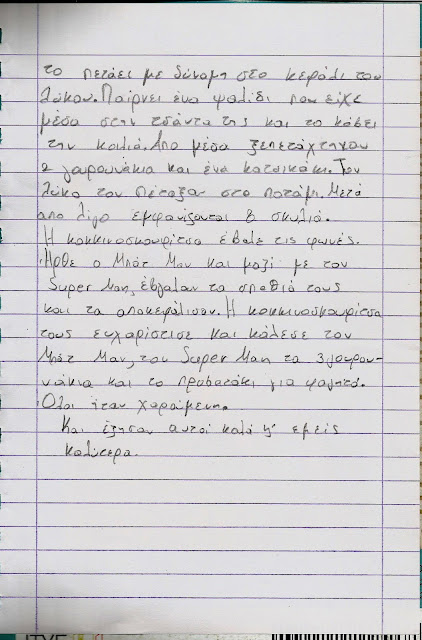 το πετάει με δύναμη στο κεφάλι του
λύκου. Παίρνει ένα ψαλίδι που είχε
μέσα στην τσάντα της και το κόβει
την κοιλιά. Από μέσα ξεπετάχτηκαν
2 γουρουνάκια και ένα κατσικάκι. Τον
λύκο τον πέταξαν στο ποτάμι. Μετά
από λίγο εμφανίζονται 8 σκυλιά.
Η κοκκινοσκουφίτσα έβαλε τις φωνές.
Ήρθε ο Μπάτ Μαν και μαζί με τον
Super Man, έβγαλαν τα σπαθιά τους
και τα αποκεφάλισαν. Η κοκκινοσκουφίτσα
τους ευχαρίστισε και κάλεσε τον
Μπάτ Μαν, τον Super Man τα 3 γουρου-
νάκια και το προβατάκι για φαγητό.
Όλοι ήταν χαρούμενοι.
Και έζησαν αυτοί καλά κ' εμείς
καλύτερα.